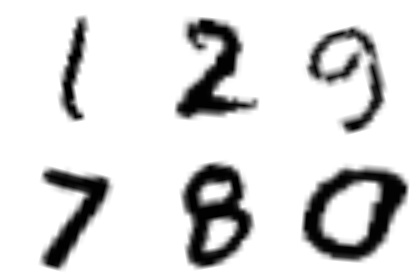 1 2 9
7 8 0